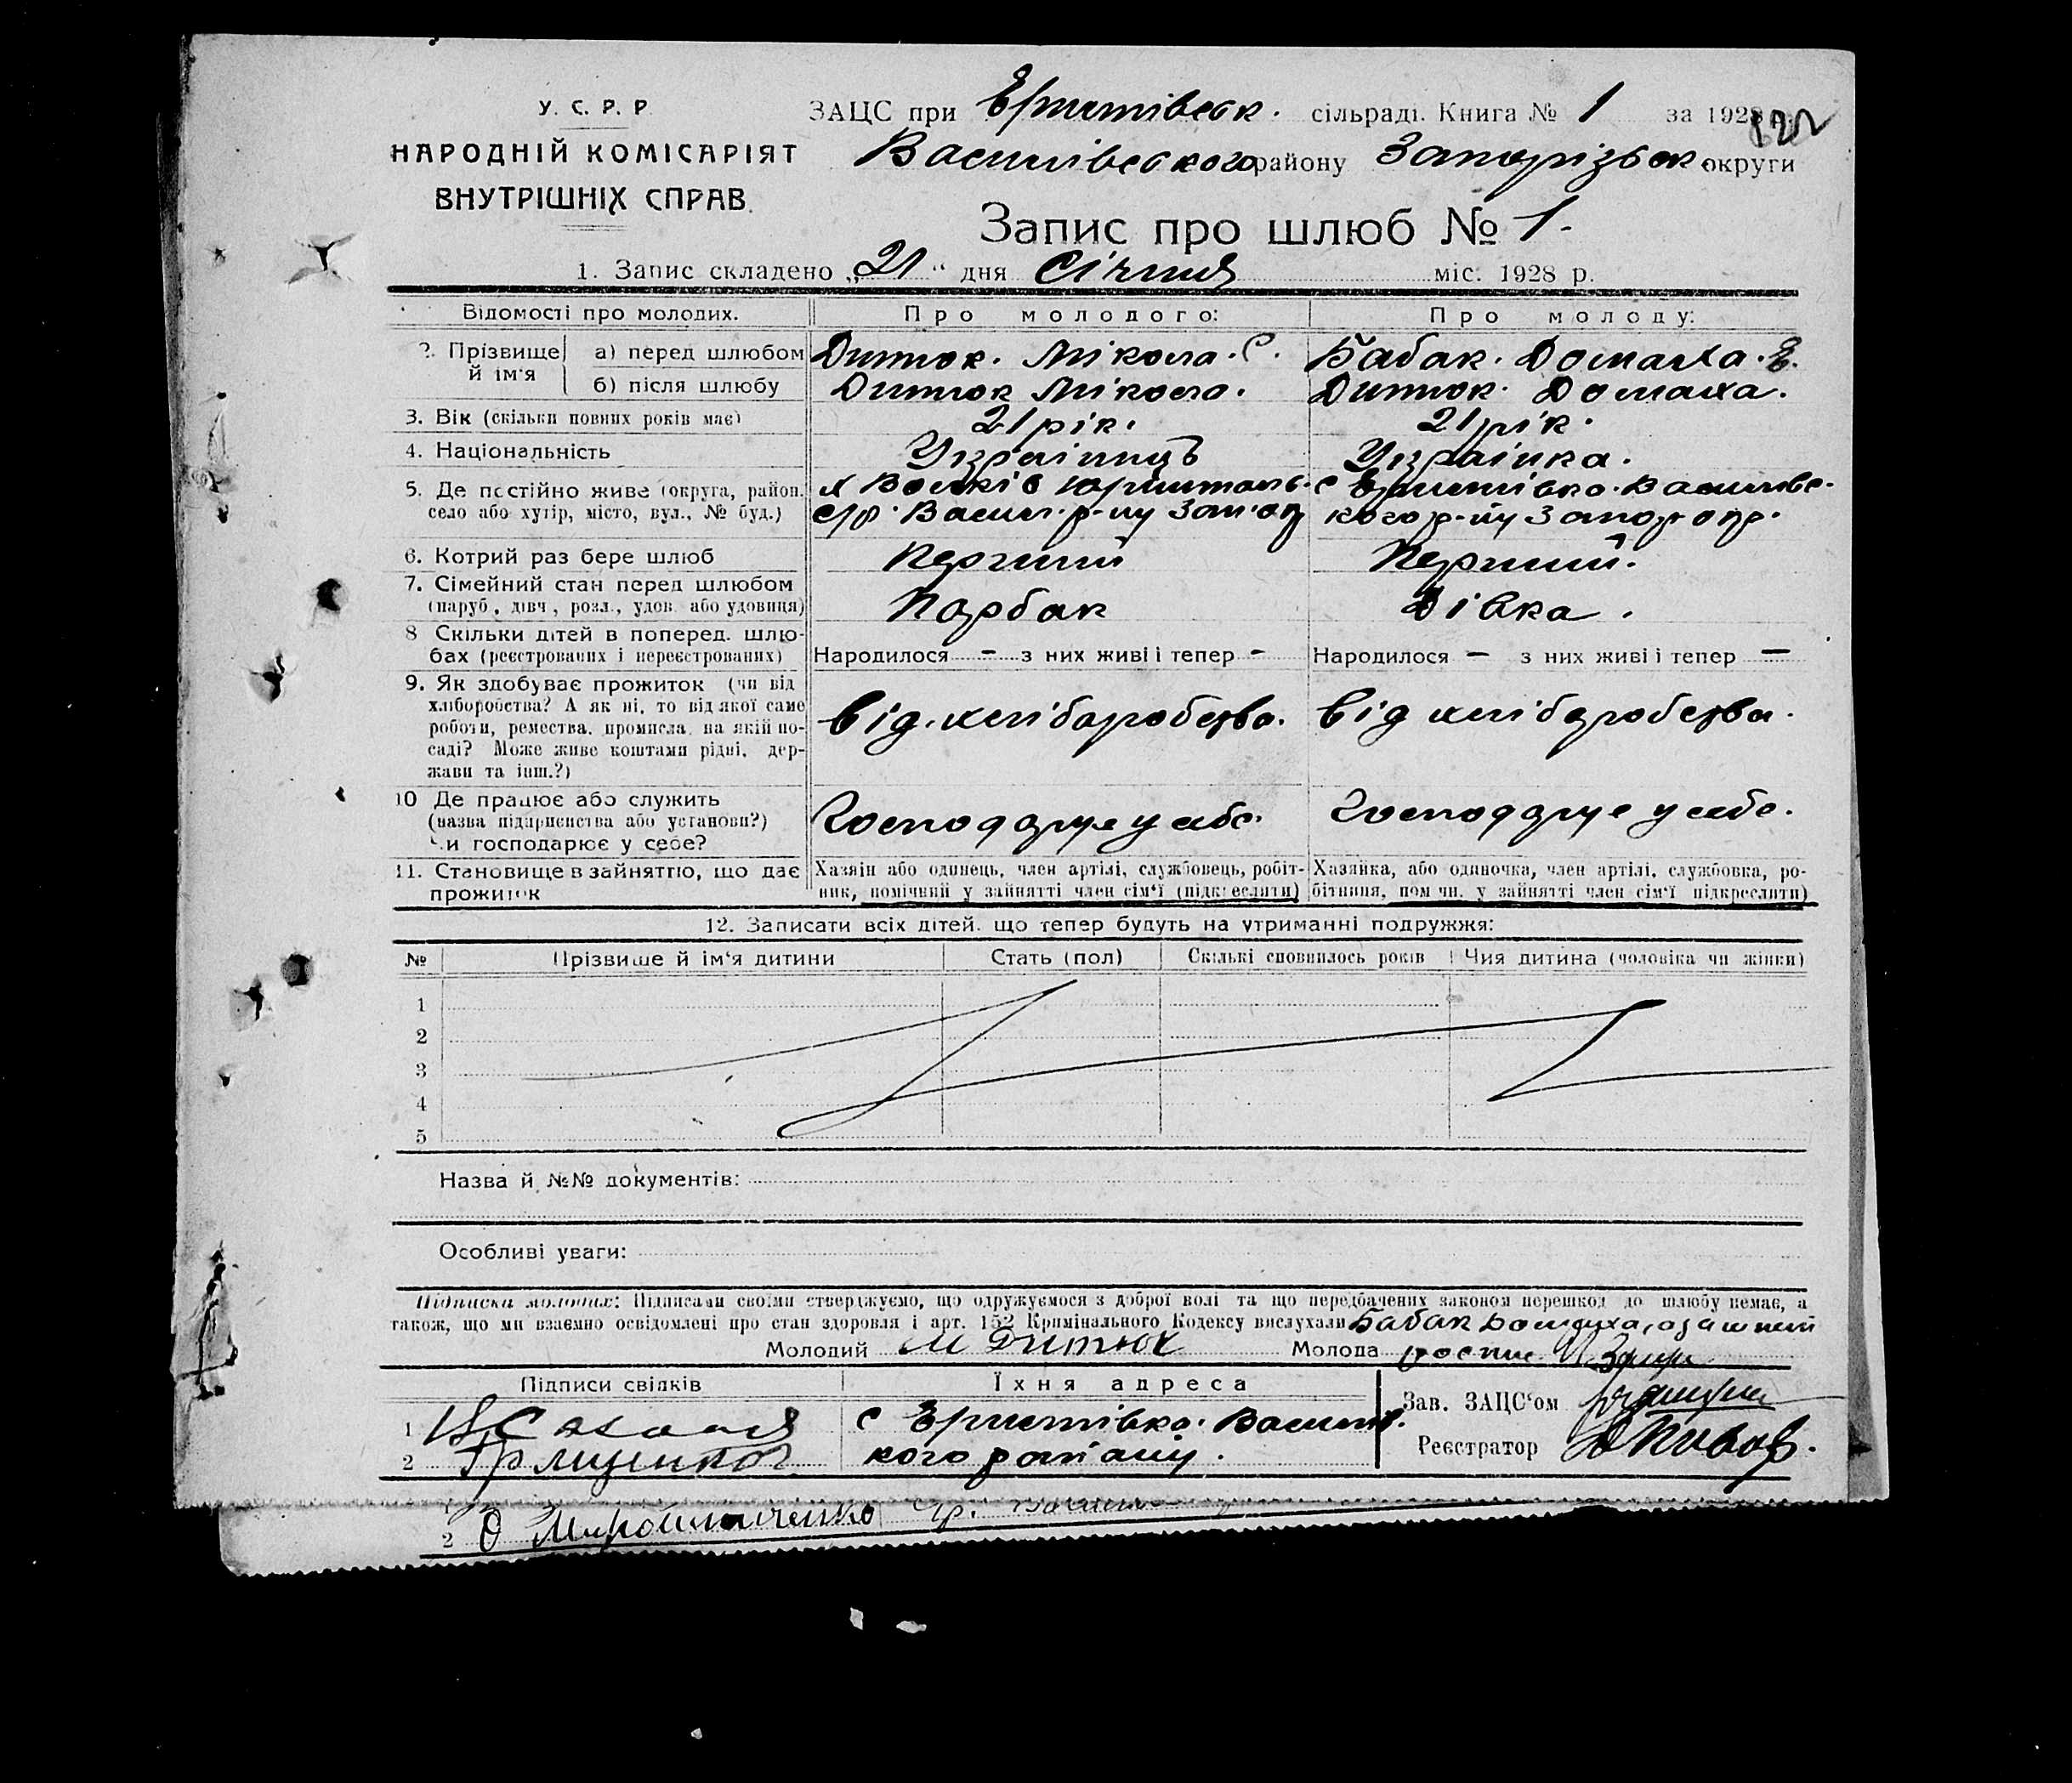 У. С. Р. Р.
НАРОДНІЙ КОМІСАРІЯТ
ВНУТРІШНІХ СПРАВ.
ЗАЦС при Ериштівськ. сільраді. Книга № 1 за 1928
122
Василівського району Запорізьк округи
Запис про шлюб № 1.
1. Запис складено „21“ дня Січня міс. 1928 р.
Відомості про молодих.
Про молодого:
Про молоду:
2. Прізвище й ім‘я
а) перед шлюбом
Дитюк. Мікола. С.
Бабак. Домаха. Е.
б) після шлюбу
Дитюк Мікола.
Дитюк. Домаха.
3. Вік (скільки повних років має)
21 рік.
21 рік.
4. Національність
Українць
Українка.
5. Де постійно живе (округа, район,
село або хутір, місто, вул., № буд.)
с/р. Васил. р-ну Зап. ок
кого р-ну Запор окр.
6. Котрий раз бере шлюб
Перший
Перший.
7. Сімейний стан перед шлюбом
(паруб., дівч., розл., удов. або удовиця)
Парбак
Дівка.
8 Скільки дітей в поперед. шлю-
бах (реєстрованих і нереєстрованих)
Народилося - з них живі і тепер -
Народилося — з них живі і тепер —
9. Як здобуває прожиток (чи від
хліборобства? А як ні, то від якої саме
роботи, ремества, промисла, на якій по-
саді? Може живе коштами рідні, дер-
жави та інш.?)
Від. хліборобства.
Від хліборобства.
10 Де працює або служить
(назва підприємства або установи?)
Чи господарює у себе?
Господарує у себе.
Господарує у себе.
11. Становище в зайнятю, що дає
прожиток
Хазяїн або одинець, член артілі, службовець, робіт-
ник, помічний у зайнятті член сім‘ї (підкреслити)
Хазяйка, або одиночка, член артілі, службовка, ро-
бітниця, помічн. у зайнятті член сім‘ї підкреслити)
12. Записати всіх дітей, що тепер будуть на утриманні подружжя:
№ Прізвище й ім‘я дитини Стать (пол) Скількі сповнилось років Чия дитина (чоловіка чи жінки)
1
2
3
4
5
Назва й №№ документів:
Особливі уваги:
Підписка молодих: Підписами своїми стверджуємо, що одружуємося з доброї волі та що передбачених законом перешкод до шлюбу немає, а
також, що ми взаємно освідомлені про стан здоровля і арт. 152 Кримінального Кодексу вислухали Бабак Домаха,
Молодий М Дитюк Молода
Підписи свідків
Їхня адреса
Зав. ЗАЦС‘ом
1
с Ериштівка. Василів.
2
кого району.
Реєстратор
1
2 О Мирошниченко